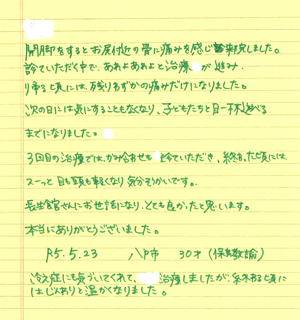 開脚をするとお尻付近の骨に痛みを感じ来院しました。
診ていただく中で、あれよあれよと治療 が進み、
帰る頃には、残りわずかの痛みだけになりました。
次の日には気にすることもなくなり、子どもたちと目一杯遊べる
までになりました。
3回目の治療では、かみ合わせも 診ていただき、終わった頃には
スーッと目も頭も軽くなり気分そうかいです。
長生館さんにお世話になり、とても良かったと思います。
本当にありがとうございました。
R5.5.23 八戸市 30才(保育教諭)
冷え症にも気づいてくれて、 治療しましたが、終わる頃に
はじんわりと温かくなりました。